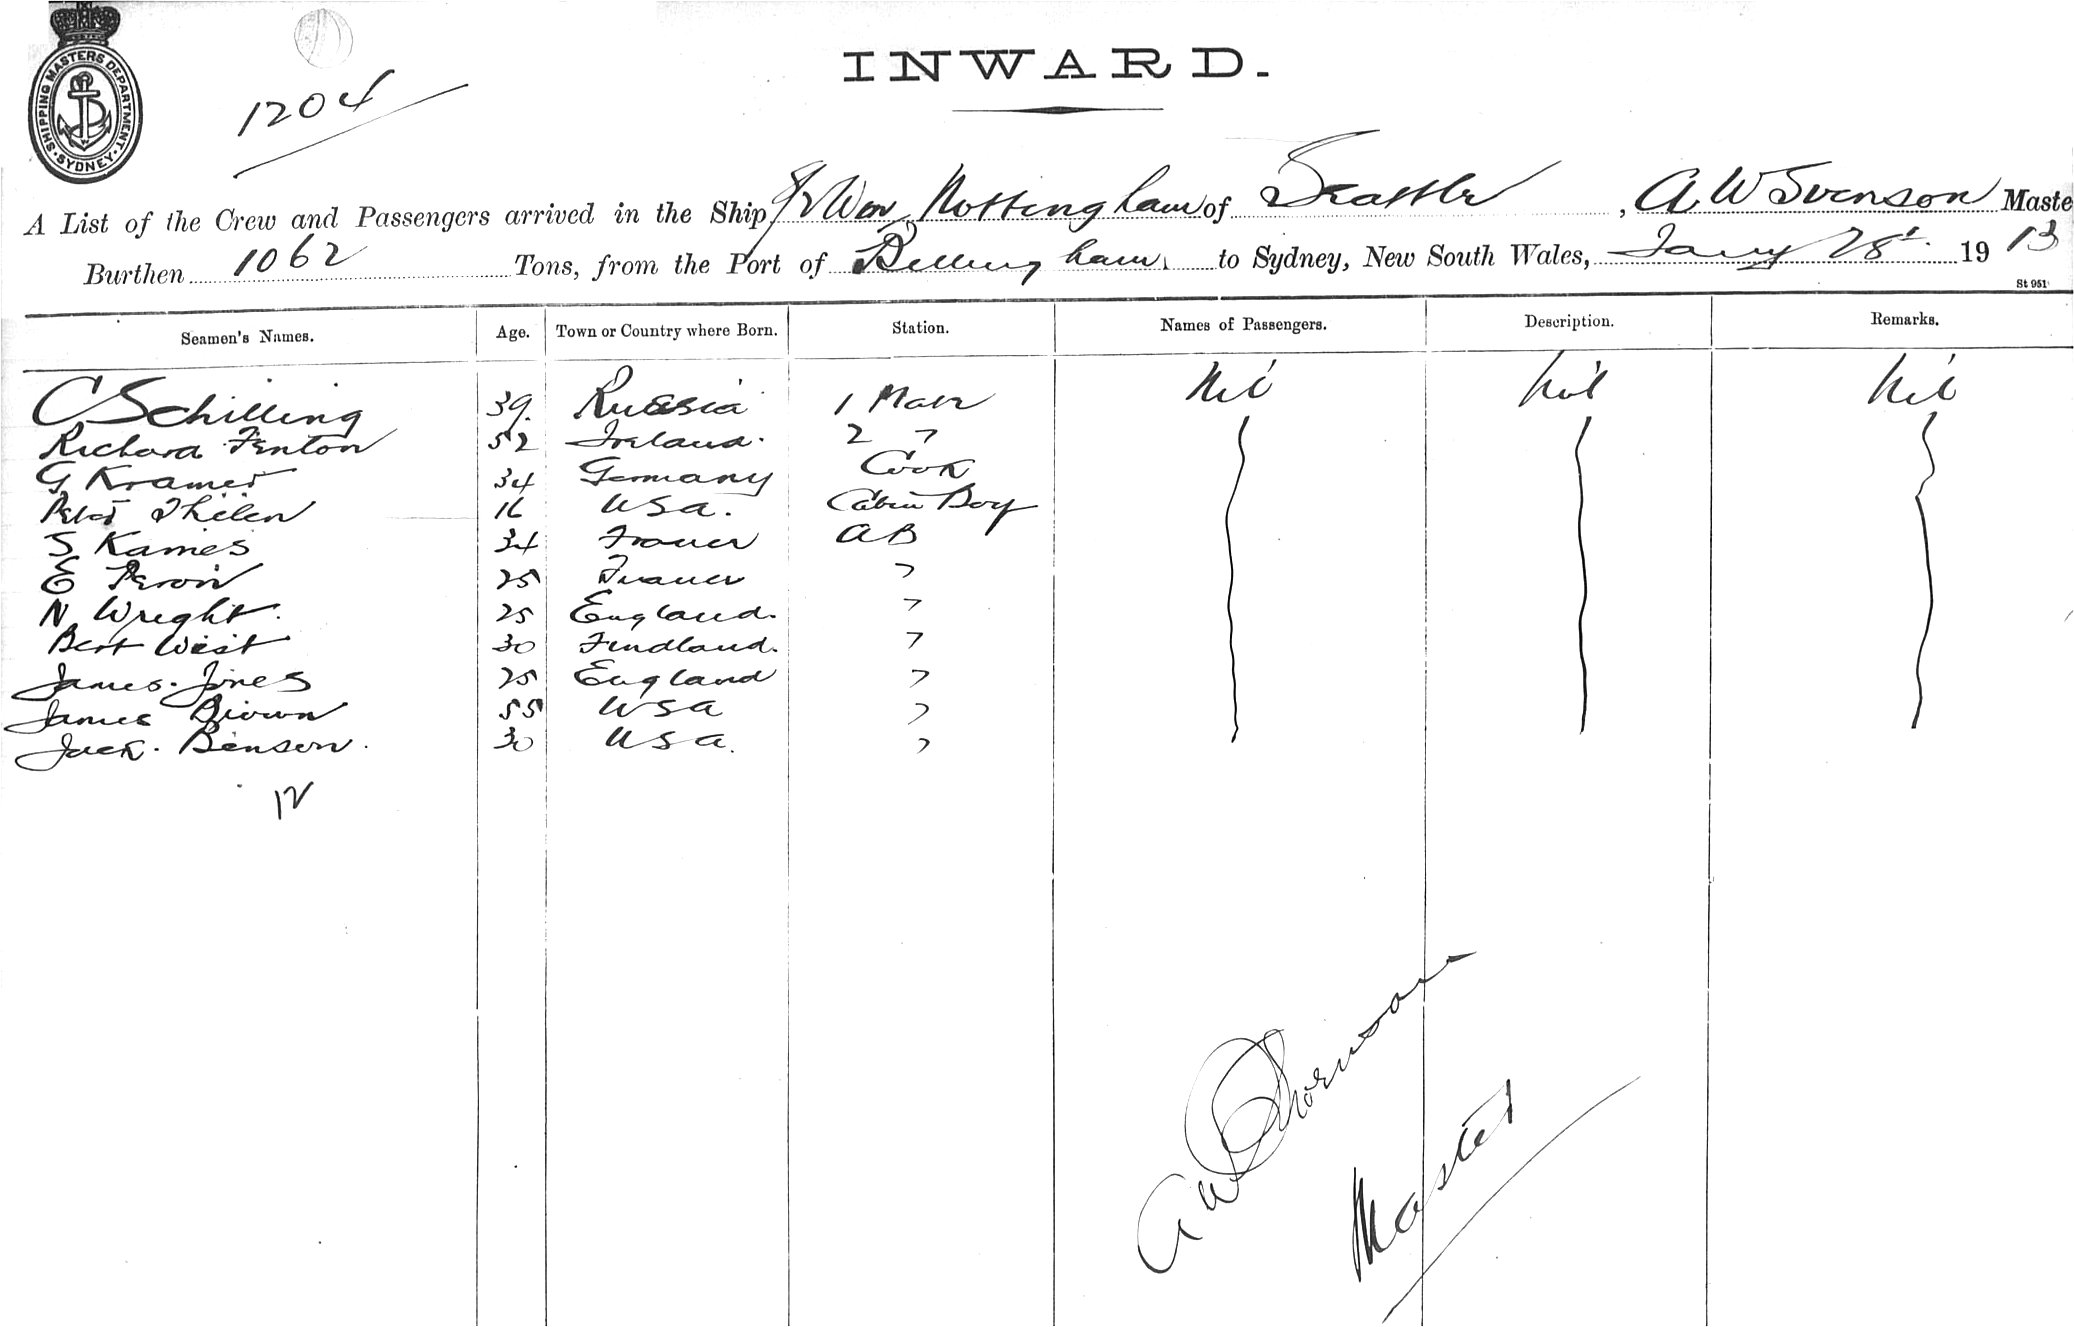 SHIPPING MASTERS DEPARTMENT. SYDNEY.
1204
INWARD.
A List of the Crew and Passengers arrived in the Ship Wm Nottingham of Seattle, A W Svenson Maste
Burthen 1062 Tons, from the Port of Bellingham to Sydney, New South Wales, Jany 28t 1913
St 951
Seamen's Names. Age. Town or Country where Born. Station. Names of Passengers. Description. Remarks.
C Schilling 39 Russia 1 Mate Nil Nil Nil
Richard Fenton 52 Ireland. 2 "
G Kramer 34 Germany Cook
Peter Thilen 16 USA. Cabin Boy
S Kames 34 France AB
E Peron 25 France "
N Wright. 25 England. "
Bert West 30 Findland. "
James Jones 25 England "
James Brown 55 USA "
Jack Benson. 30 USA. "
12
A W
Master